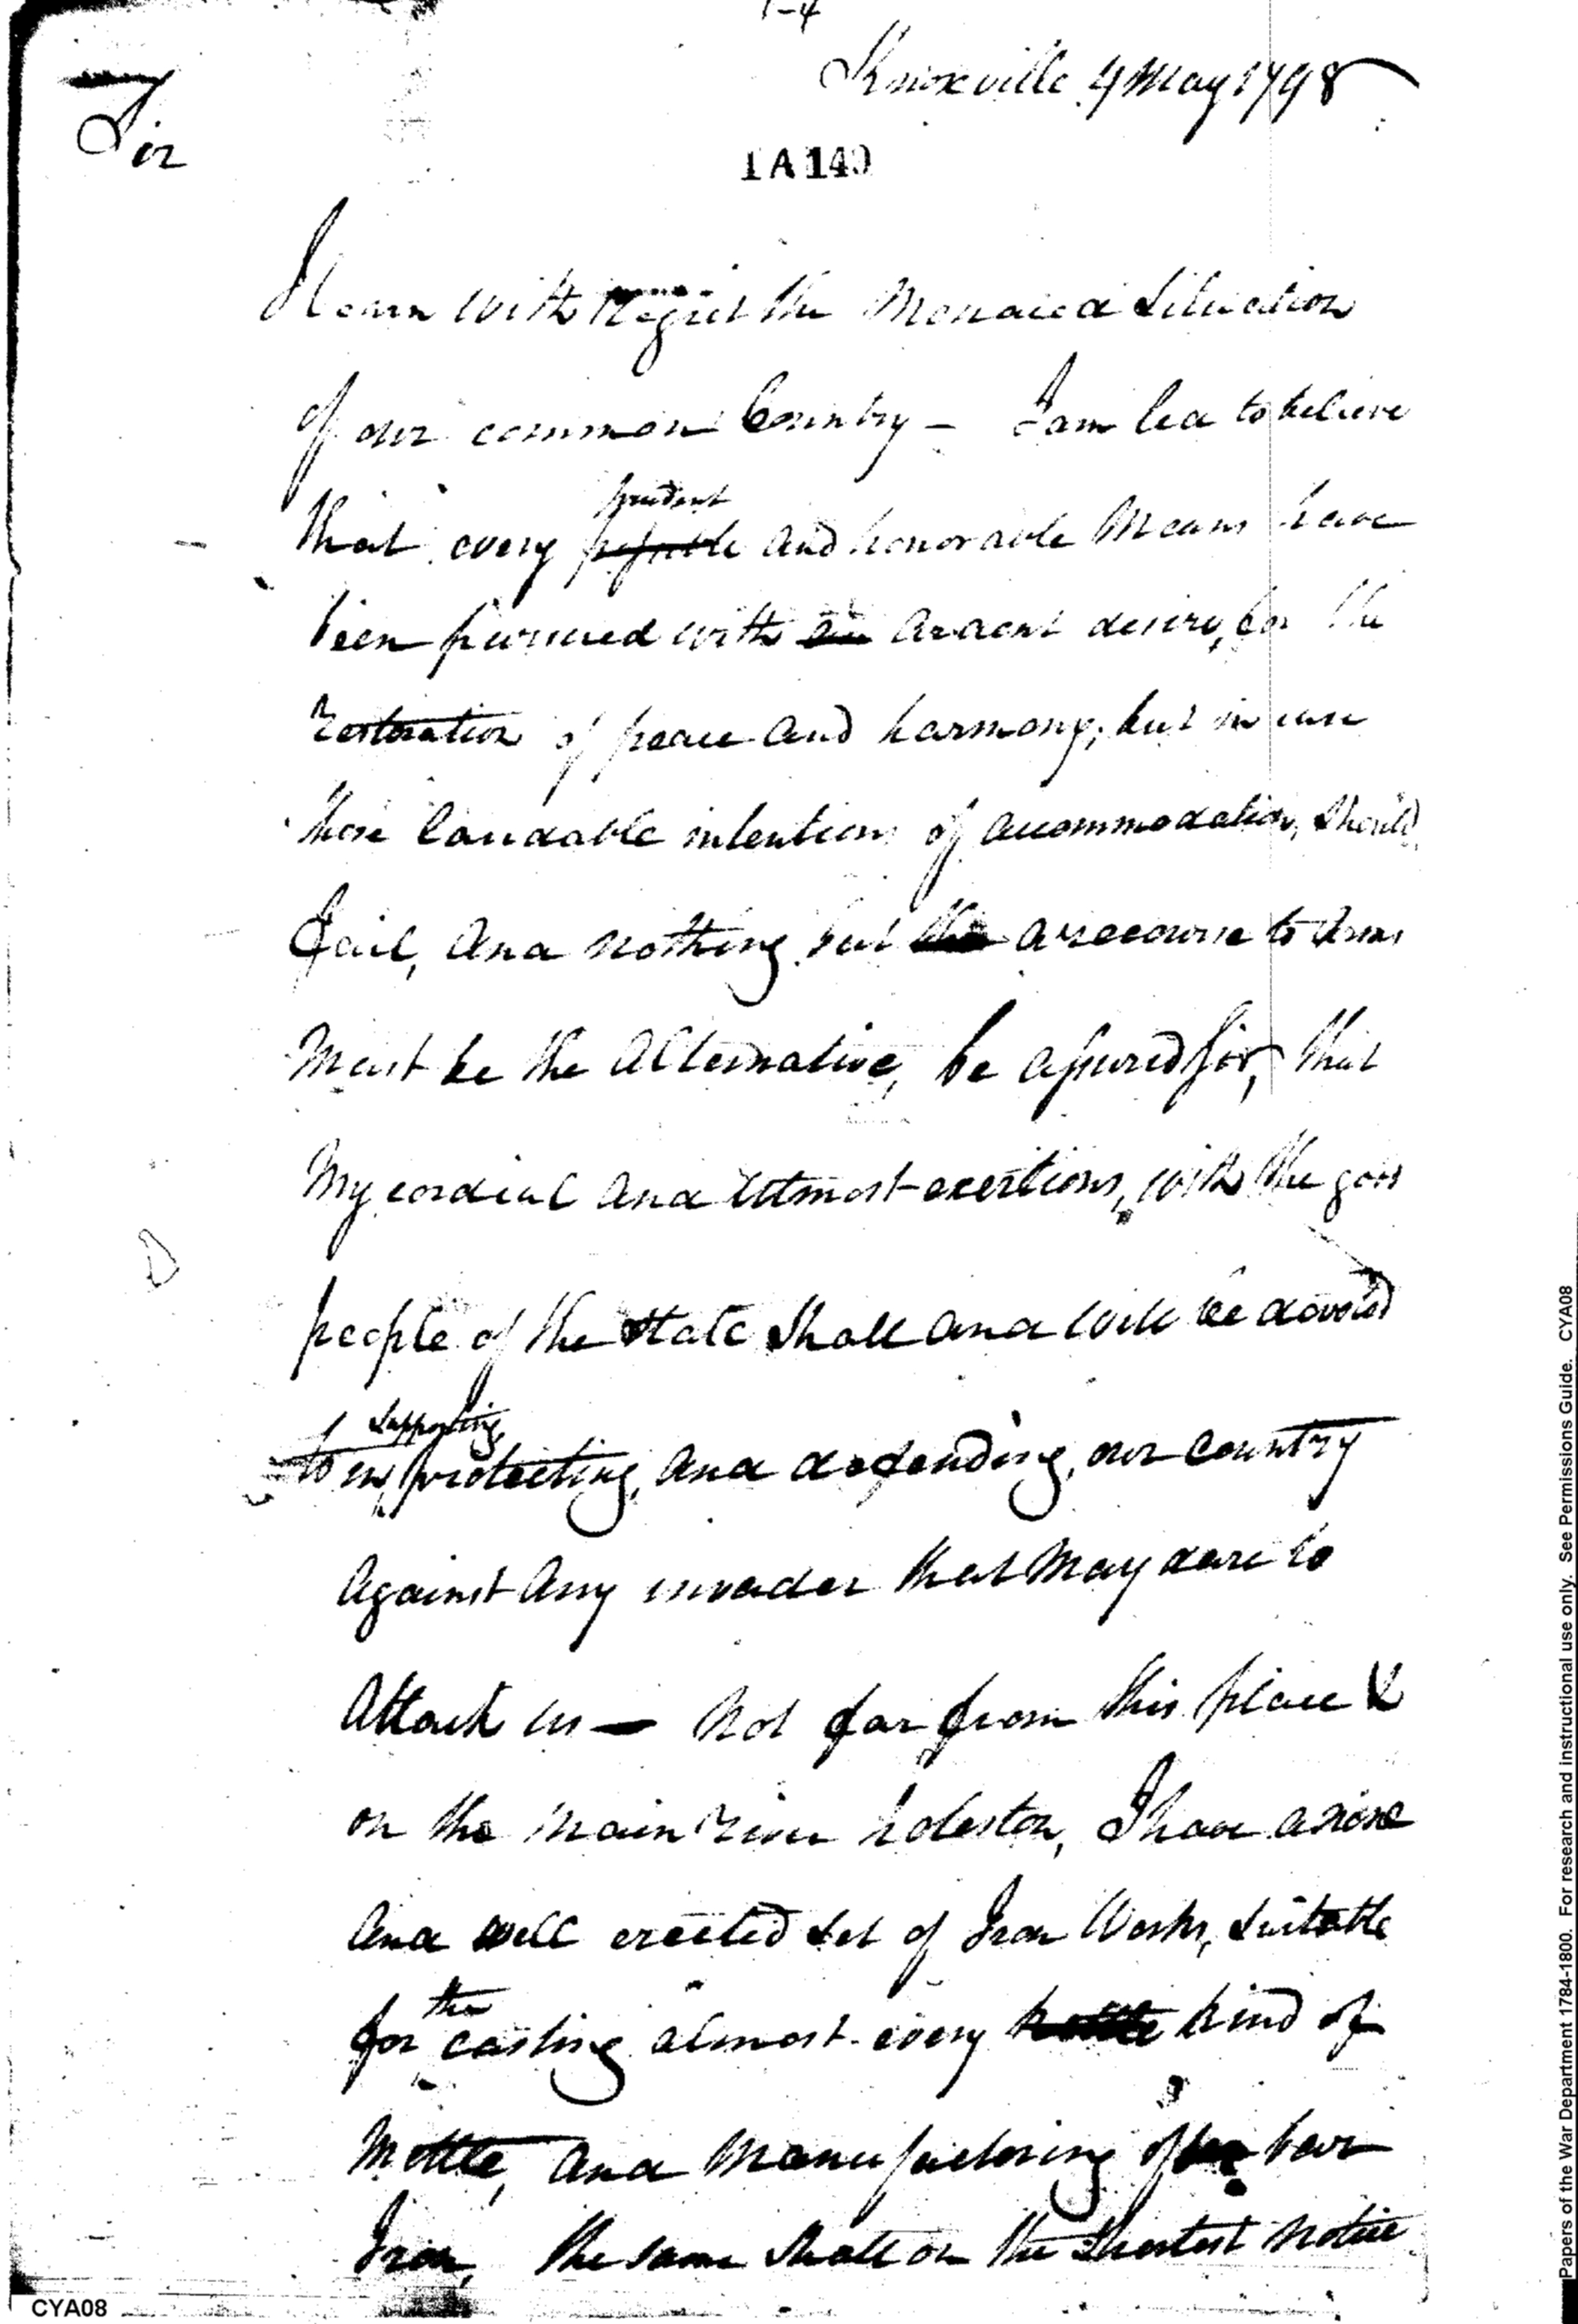 1-4
Knoxville 4 May 1798
Sir
IA140
I learn with Regret the Menaced Situation
of our common Country – I am led to believe
prudent
that every possible and honorable Means have
been pursued with an ardent desire, for the
Restoration of peace and harmony; but in case
those laudable intentions of accommodation, should
fail, and nothing but the a recourse to Arms
Must be the Alternative, be assured Sir, that
My cordial and Utmost exertions, with the good
people of the State Shall and will be devoted
supporting,
to in protecting, and defending, our Country
Against Any invader that May dare to
Attack us — Not far from this place &
on the Main River holeston, I have a nine
And well erected Set of Iron Works, Suitable
the
for casting almost every kind of
Mettle, and Manufactoring of bar
Iron, the same Shall on the Shortest Notice
CYA08
Papers of the War Department 1784-1800. For research and instructional use only. See Permissions Guide. CYA08